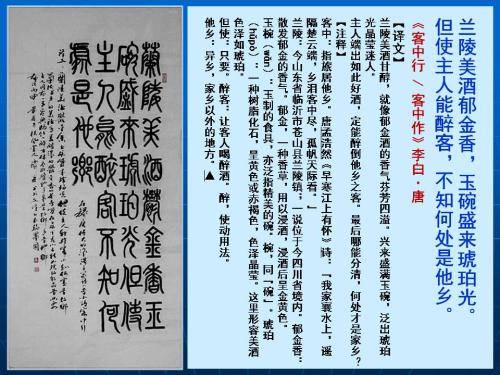 兰陵美酒郁金香，玉碗盛来琥珀光。
但使主人能醉客，不知何处是他乡。
《客中行 / 客中作》李白·唐
【译文】
兰陵美酒甘醇，就像郁金酒的香气芬芳四溢。兴来盛满玉碗，泛出琥珀
光晶莹迷人。
主人端出如此好酒，定能醉倒他乡之客，最后哪能分清，何处才是家乡？
【注释】
客中：指旅居他乡。唐孟浩然《早寒江上有怀》诗：「我家襄水上，遥
隔楚云端，乡泪客中尽，孤帆天际看。」
兰陵：今山东省临沂市苍山县兰陵镇；一说位于今四川省境内。郁金香：
散发郁金的香气。郁金，一种香草，用以浸酒，浸酒后呈金黄色。
玉椀（wǎn）：玉制的食具，亦泛指精美的碗。椀，同「碗」。琥珀
（hǔpò）：一种树脂化石，呈黄色或赤褐色，色泽晶莹。这里形容美酒
色泽如琥珀。
但使：只要。醉客：让客人喝醉酒。醉，使动用法。
他乡：异乡，家乡以外的地方。▲
蘭陵美酒鬱金香玉
碗盛來琥珀光但使
主人能醉客不知何
處是他鄉